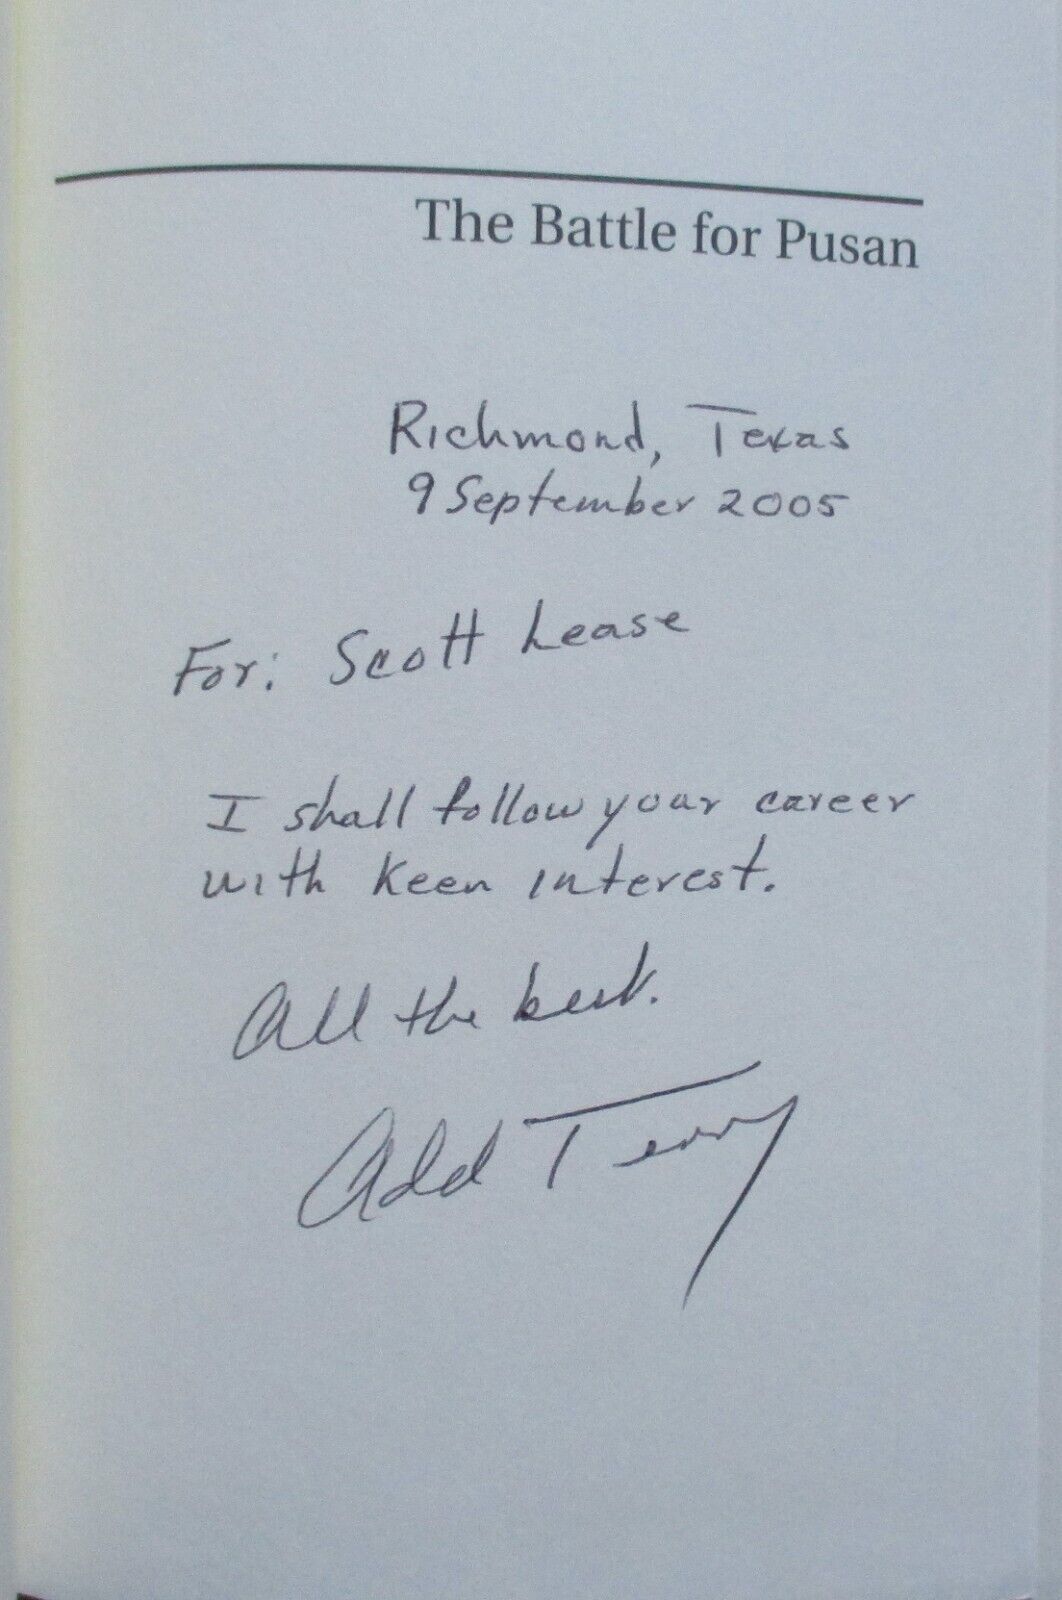 The Battle for Pusan
Richmond, Texas
9 September 2005
For: Scott Lease
I shall follow your career
with keen interest.
All the best.
Add Terry